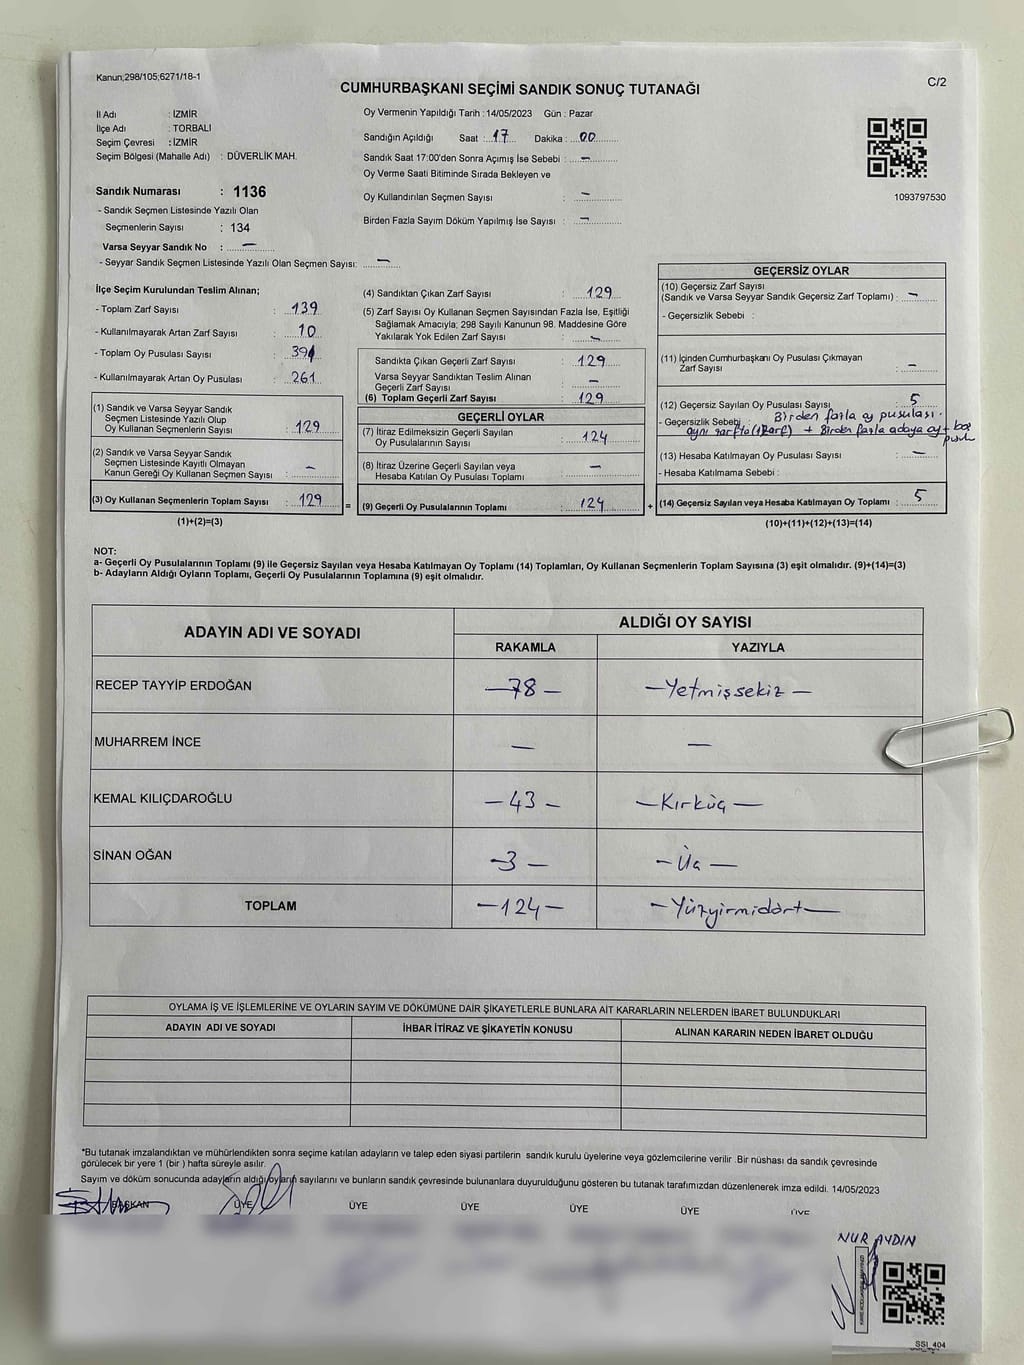 Kanun;298/105;6271/18-1
CUMHURBAŞKANI SEÇİMİ SANDIK SONUÇ TUTANAĞI
C/2
İl Adı : İZMİR
İlçe Adı : TORBALI
Seçim Çevresi : İZMİR
Seçim Bölgesi (Mahalle Adı) : DÜVERLİK MAH.
Sandık Numarası : 1136
- Sandık Seçmen Listesinde Yazılı Olan
Seçmenlerin Sayısı : 134
Varsa Seyyar Sandık No : —
- Seyyar Sandık Seçmen Listesinde Yazılı Olan Seçmen Sayısı: —
Oy Vermenin Yapıldığı Tarih : 14/05/2023 Gün : Pazar
Sandığın Açıldığı Saat : 17 Dakika : 00
Sandık Saat 17:00'den Sonra Açımış İse Sebebi : —
Oy Verme Saati Bitiminde Sırada Bekleyen ve
Oy Kullandırılan Seçmen Sayısı : —
Birden Fazla Sayım Döküm Yapılmış İse Sayısı : —
1093797530
İlçe Seçim Kurulundan Teslim Alınan;
- Toplam Zarf Sayısı : 139
- Kullanılmayarak Artan Zarf Sayısı : 10
- Toplam Oy Pusulası Sayısı :
- Kullanılmayarak Artan Oy Pusulası : 261
(1) Sandık ve Varsa Seyyar Sandık
Seçmen Listesinde Yazılı Olup
Oy Kullanan Seçmenlerin Sayısı : 129
(2) Sandık ve Varsa Seyyar Sandık
Seçmen Listesinde Kayıtlı Olmayan
Kanun Gereği Oy Kullanan Seçmen Sayısı : —
(3) Oy Kullanan Seçmenlerin Toplam Sayısı : 129
(1)+(2)=(3)
=
(4) Sandıktan Çıkan Zarf Sayısı : 129
(5) Zarf Sayısı Oy Kullanan Seçmen Sayısından Fazla İse, Eşitliği
Sağlamak Amacıyla; 298 Sayılı Kanunun 98. Maddesine Göre
Yakılarak Yok Edilen Zarf Sayısı : —
Sandıkta Çıkan Geçerli Zarf Sayısı : 129
Varsa Seyyar Sandıktan Teslim Alınan
Geçerli Zarf Sayısı : —
(6) Toplam Geçerli Zarf Sayısı : 129
GEÇERLİ OYLAR
(7) İtiraz Edilmeksizin Geçerli Sayılan
Oy Pusulalarının Sayısı : 124
(8) İtiraz Üzerine Geçerli Sayılan veya
Hesaba Katılan Oy Pusulası Toplamı : —
(9) Geçerli Oy Pusulalarının Toplamı : 124
+
GEÇERSİZ OYLAR
(10) Geçersiz Zarf Sayısı
(Sandık ve Varsa Seyyar Sandık Geçersiz Zarf Toplamı) : —
- Geçersizlik Sebebi :
(11) İçinden Cumhurbaşkanı Oy Pusulası Çıkmayan
Zarf Sayısı : —
(12) Geçersiz Sayılan Oy Pusulası Sayısı : 5
- Geçersizlik Sebebi Birden fazla oy pusulası.
aynı zarfta + Birden fazla adaya oy + boş
(13) Hesaba Katılmayan Oy Pusulası Sayısı : —
- Hesaba Katılmama Sebebi :
(14) Geçersiz Sayılan veya Hesaba Katılmayan Oy Toplamı : 5
(10)+(11)+(12)+(13)=(14)
NOT:
a- Geçerli Oy Pusulalarının Toplamı (9) ile Geçersiz Sayılan veya Hesaba Katılmayan Oy Toplamı (14) Toplamları, Oy Kullanan Seçmenlerin Toplam Sayısına (3) eşit olmalıdır. (9)+(14)=(3)
b- Adayların Aldığı Oyların Toplamı, Geçerli Oy Pusulalarının Toplamına (9) eşit olmalıdır.
ADAYIN ADI VE SOYADI
ALDIĞI OY SAYISI
RAKAMLA YAZIYLA
RECEP TAYYİP ERDOĞAN —78— —Yetmişsekiz—
MUHARREM İNCE — —
KEMAL KILIÇDAROĞLU —43— —Kırküç—
SİNAN OĞAN —3— —Üç—
TOPLAM —124— —Yüzyirmidört—
OYLAMA İŞ VE İŞLEMLERİNE VE OYLARIN SAYIM VE DÖKÜMÜNE DAİR ŞİKAYETLERLE BUNLARA AİT KARARLARIN NELERDEN İBARET BULUNDUKLARI
ADAYIN ADI VE SOYADI İHBAR İTİRAZ VE ŞİKAYETİN KONUSU ALINAN KARARIN NEDEN İBARET OLDUĞU
*Bu tutanak imzalandıktan ve mühürlendikten sonra seçime katılan adayların ve talep eden siyasi partilerin sandık kurulu üyelerine veya gözlemcilerine verilir .Bir nüshası da sandık çevresinde
görülecek bir yere 1 (bir ) hafta süreyle asılır.
Sayım ve döküm sonucunda adayların aldığı oyların sayılarını ve bunların sandık çevresinde bulunanlara duyurulduğunu gösteren bu tutanak tarafımızdan düzenlenerek imza edildi. 14/05/2023
BAŞKAN ÜYE ÜYE ÜYE ÜYE ÜYE ÜYE
NUR AYDIN
SSI_404